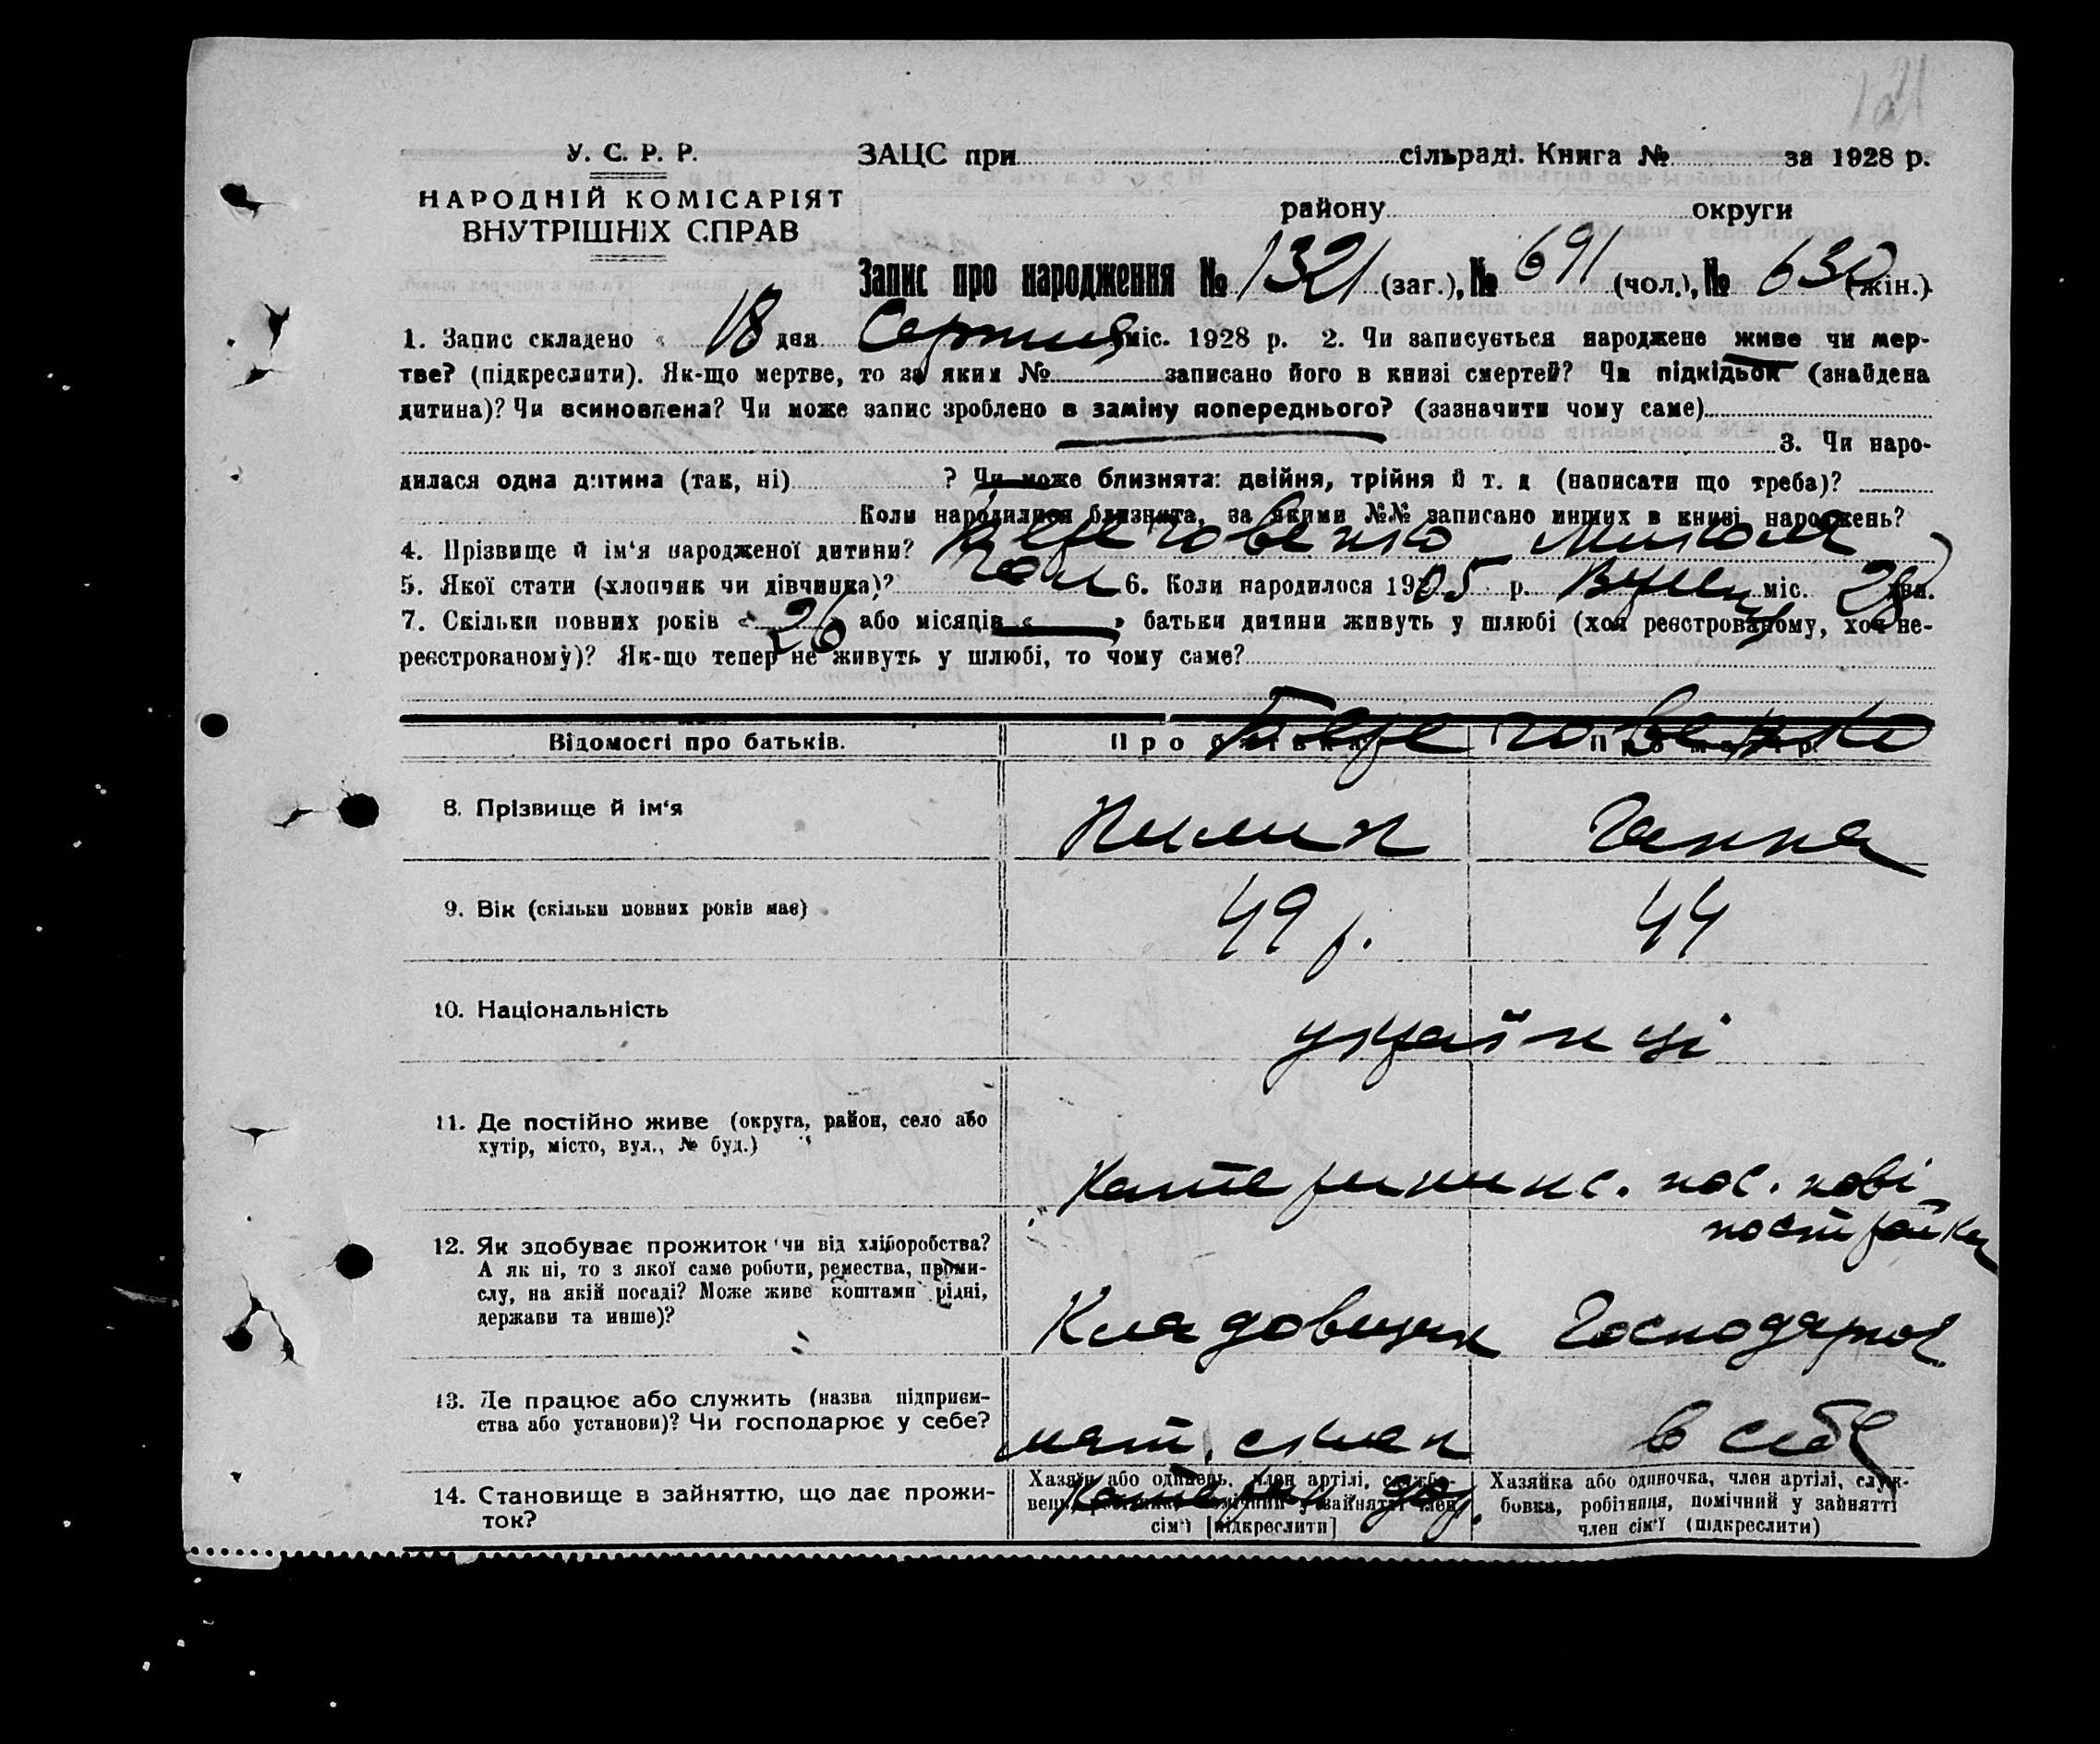 121
У. С. Р. Р.
НАРОДНІЙ КОМІСАРІЯТ
ВНУТРІШНІХ СПРАВ
ЗАЦС при сільраді. Книга № за 1928 р.
району округи
Запис про народження № 1321 (заг.), № 691 (чол.), № 630 (жін.)
1. Запис складено « 18 дня Серпня міс. 1928 р. 2. Чи записується народжене живе чи мер-
тве? (підкреслити). Як-що мертве, то за яким № записано його в книзі смертей? Чи підкідьок (знайдена
дитина)? Чи всиновлена? Чи може запис зроблено в заміну попереднього? (зазначити чому саме)
3. Чи наро-
дилася одна дитина (так, ні) ? Чи може близнята: двійня, трійня й т. д (написати що треба)?
Коли народилися близнята, за якими №№ записано инших в книзі народжень?
4. Прізвище й ім‘я народженої дитини? Микола
5. Якої стати (хлопчик чи дівчинка)? чол 6. Коли народилося 1905 р. міс. 28 дня.
7. Скільки повних років « 26 » або місяців « — » батьки дитини живуть у шлюбі (хоч реєстрованому, хоч не-
реєстрованому)? Як-що тепер не живуть у шлюбі, то чому саме?
Відомості про батьків. Про батька Про матір
8. Прізвище й ім‘я Пилип Ганна
9. Вік (скільки повних років має) 49 р. 44
10. Національність українці
11. Де постійно живе (округа, район, село або
хутір, місто, вул., № буд.)
Катерининс. пос. нові
постройки
12. Як здобуває прожиток чи від хліборобства?
А як ні, то з якої саме роботи, ремества, проми-
слу, на якій посаді? Може живе коштами рідні,
держави та инше)?
Кладовщик Господарює
13. Де працює або служить (назва підприєм-
ства або установи)? Чи господарює у себе?
мат. склад в себе
Катерин. дор.
14. Становище в зайняттю, що дає прожи-
ток?
Хазяїн або одинець, член артілі, службо-
вець, робітник, помічний у зайнятті член
сім‘ї [підкреслити]
Хазяйка або одиночка, член артілі, служ-
бовка, робітниця, помічний у зайнятті
член сім‘ї (підкреслити)